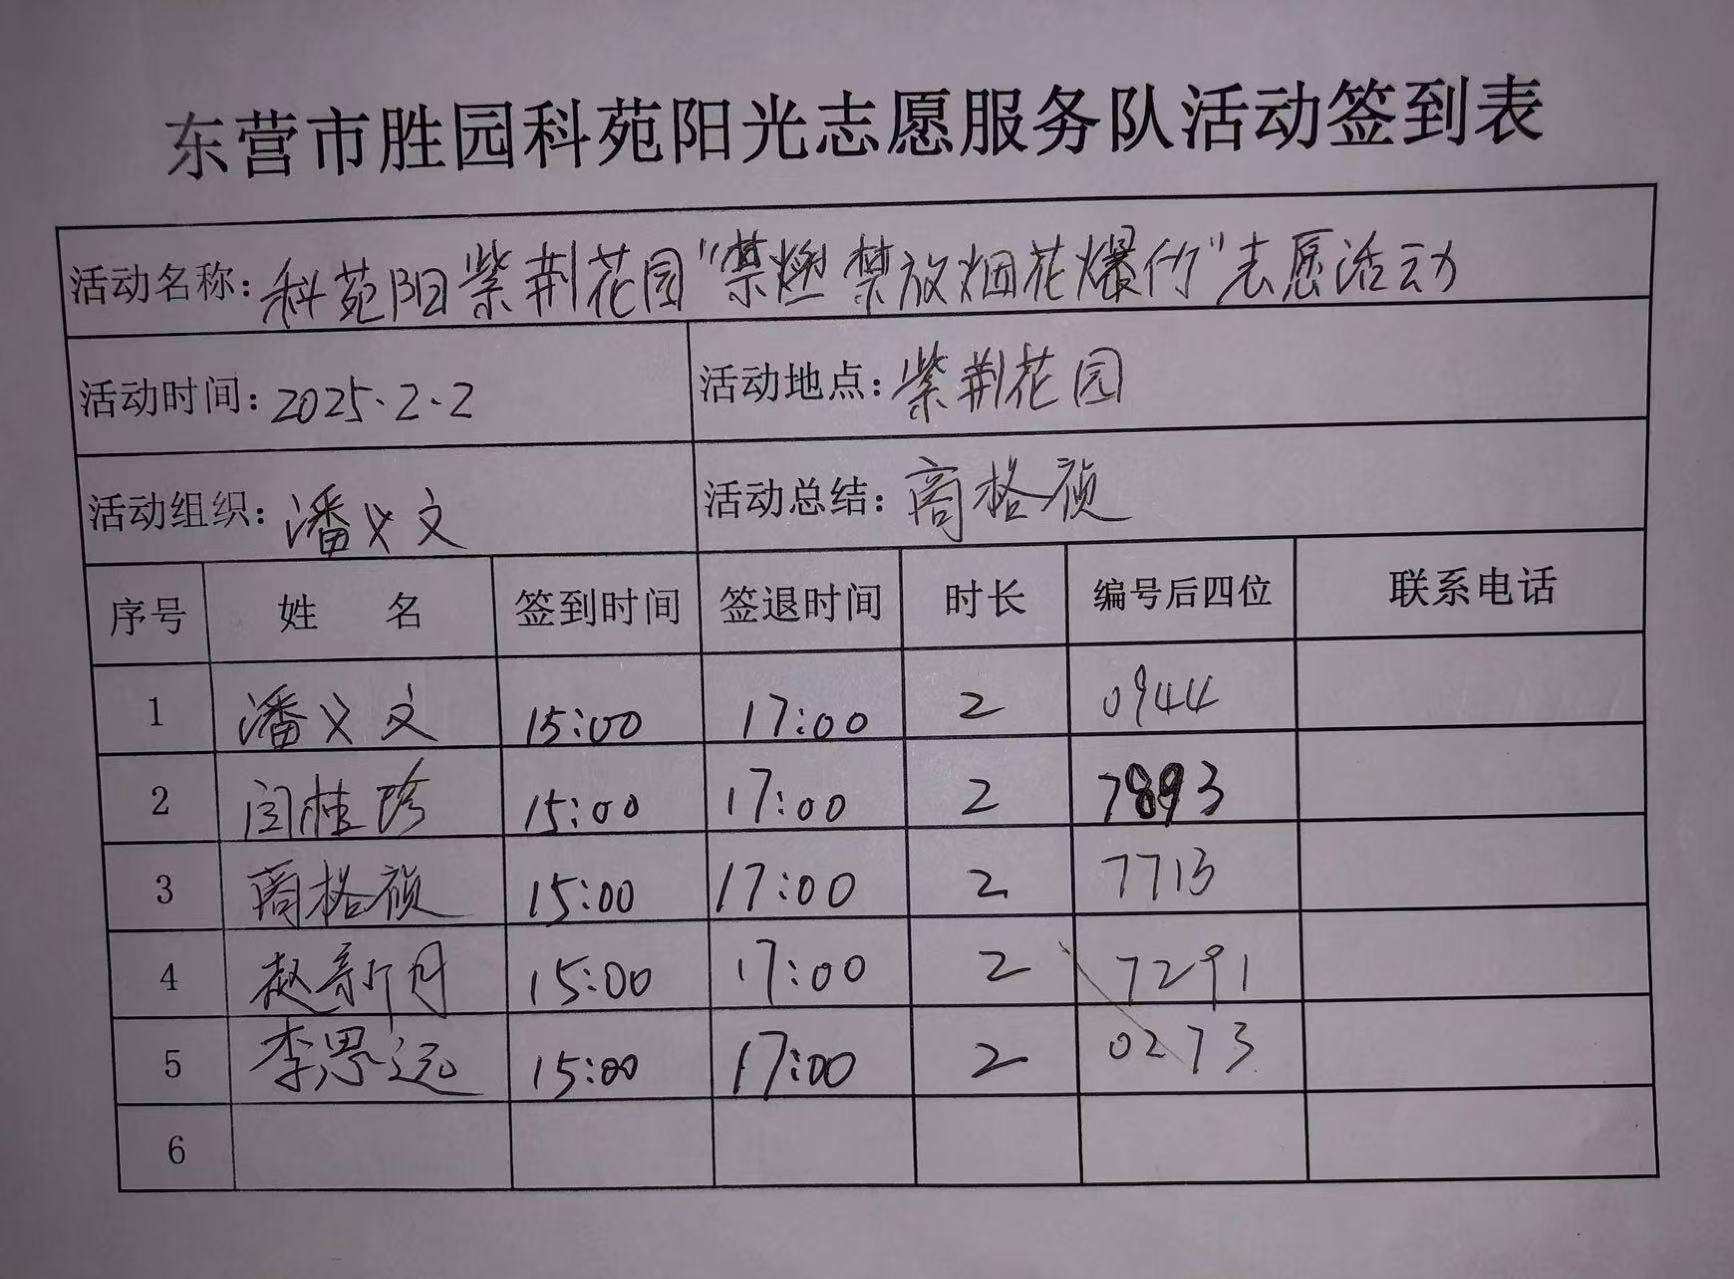 东营市胜园科苑阳光志愿服务队活动签到表
活动名称:科苑阳紫荆花园"禁燃禁放烟花爆竹"志愿活动
活动时间:2025.2.2 活动地点:紫荆花园
活动组织:潘义文 活动总结:商格祯
序号 姓 名 签到时间 签退时间 时长 编号后四位 联系电话
1 潘义文 15:00 17:00 2 0944
2 闫桂珍 15:00 17:00 2 7893
3 商格祯 15:00 17:00 2 7713
4 赵新月 15:00 17:00 2 7291
5 李思远 15:00 17:00 2 0273
6